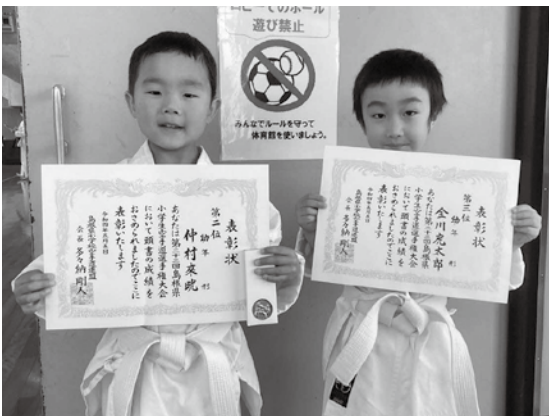 ロビーでのボール
遊び禁止
みんなでルールを守って
体育館を使いましょう。
表彰状
第二位
幼年 形
仲村來暁
あなたは第二十回島根県
小学生空手道選手権大会
において頭書の成績を
おさめられましたのでここに
表彰いたします
会長 多々納剛人
表彰状
第三位
幼年 形
金川虎太郎
あなたは第二十回島根県
小学生空手道選手権大会
において頭書の成績を
おさめられましたのでここに
表彰いたします
会長 多々納剛人